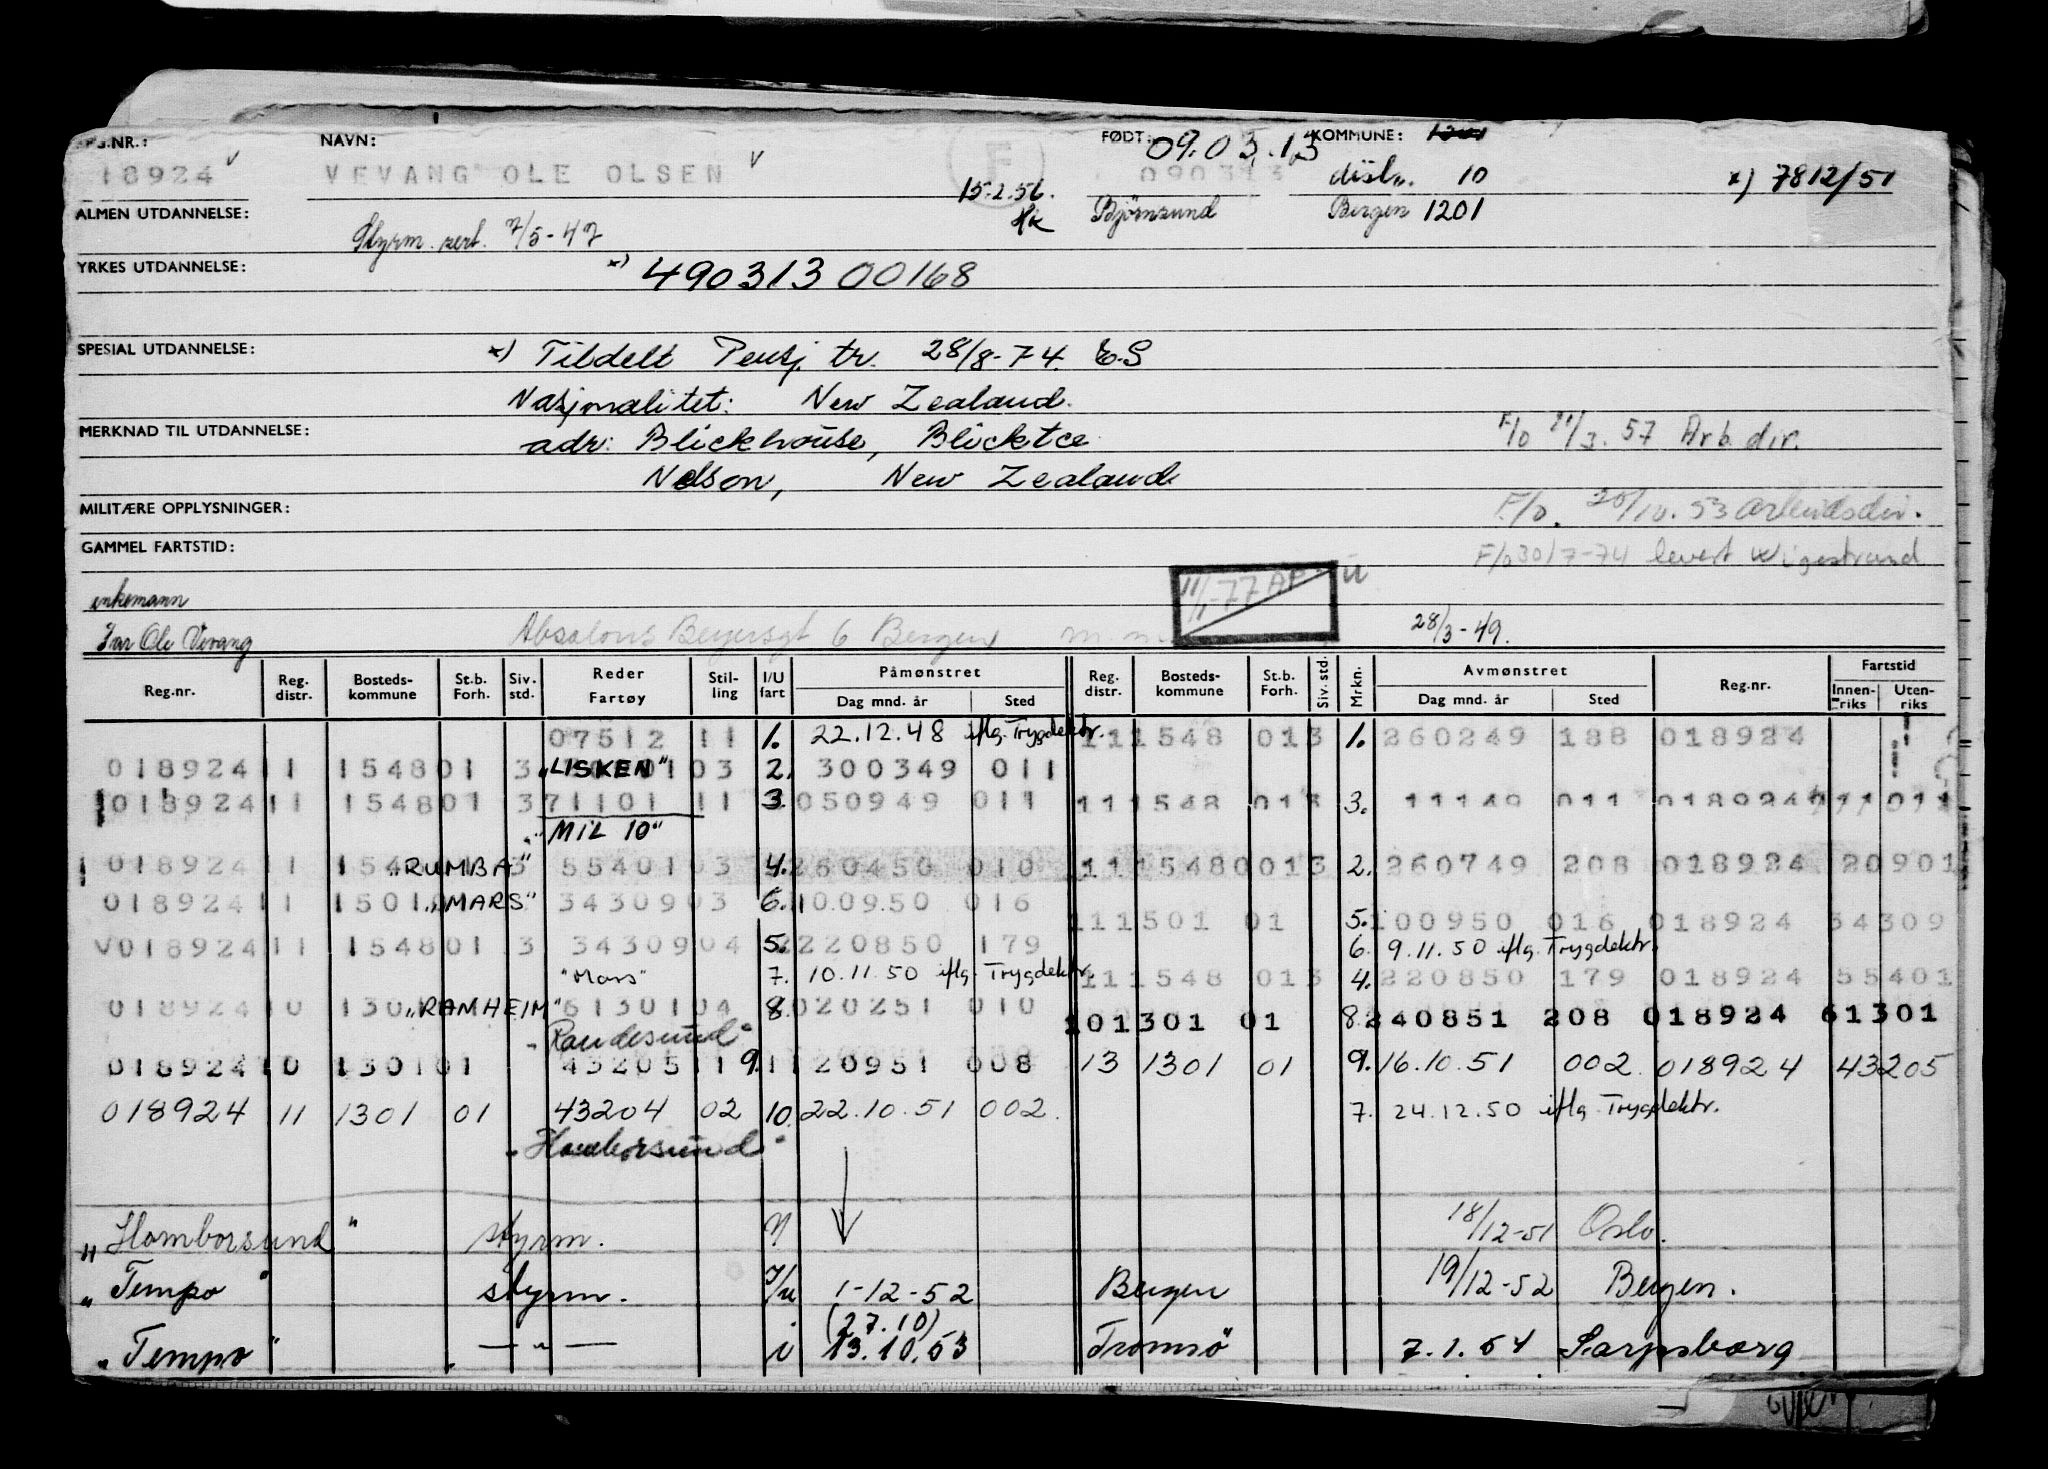 REG.NR.: NAVN: FØDT: 09.03.13 KOMMUNE:
18924 v VEVANG OLE OLSEN v F 15.2.56. 090313 10 x) 7812/51
ALMEN UTDANNELSE: Styrm. sert. 7/5-47 Hk Bjørnsund Bergen 1201
YRKES UTDANNELSE: x) 490313 00168
SPESIAL UTDANNELSE: x) Tildelt Pensj. tr. 28/8-74. E.S
Nasjonalitet: New Zealand.
MERKNAD TIL UTDANNELSE: adr: Blickhouse, Blicktce F/o 11/3.57 Arb.dir.
Nelson, New Zealand
MILITÆRE OPPLYSNINGER: F/o. 20/10.53 Arbeidsdir.
GAMMEL FARTSTID: F/o 30/7-74 levert Wigestrand
enkemann 11/1-77
Ole Vevang Absalons Beyersgt 6 Bergen 28/3-49.
Reg.nr. Reg. distr. Bosteds-kommune St.b. Forh. Siv. std. Reder Fartøy Stil-ling I/U fart Påmønstret Dag mnd. år Sted Reg. distr. Bosteds-kommune St.b. Forh. Siv. std. Mrkn. Avmønstret Dag mnd. år Sted Reg.nr. Fartstid Innen-riks Uten-riks
07512 11 1. 22.12.48 iflg. Trygdektr. 111548 013 1. 260249 188 018924
018924 11 154801 3 "LISKEN" 03 2. 300349 011
018924 11 154801 3 71101 11 3. 050949 011 111548 013 3. 11149 011 018924
"MIL 10"
018924 11 "RUMBA" 3 55401 03 4. 260450 010 111548 0013 2. 260749 208 018924 20901
018924 11 1501 "MARS" 34309 03 6. 10.09.50 016
111501 01 5. 100950 016 018924 34309
V018924 11 154801 3 34309 04 5. 220850 179 6. 9.11.50 iflg. Trygdektr.
"Mars" 7. 10.11.50 iflg. Trygdektr. 111548 013 4. 220850 179 018924 55401
018924 10 1301 "RAMHEIM" 61301 04 8. 020251 010
101301 01 8. 240851 208 018924 61301
"Randesund"
018924 10 1301 01 43205 11 9. 120951 008 13 1301 01 9. 16.10.51 002 018924 43205
018924 11 1301 01 43204 02 10. 22.10.51 002. 7. 24.12.50 iflg. Trygdektr.
"Homborsund"
"Homborsund" styrm. 18/12-51 Oslo.
"Tempo" styrm. I/u 1-12-52 Bergen 19/12-52 Bergen.
(27.10)
"Tempo" — " — i 13.10.53 Tromsø 7.1.54 Sarpsborg